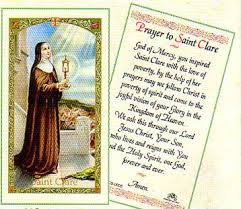 Saint Clare
Prayer to Saint Clare
God of Mercy, you inspired
Saint Clare with the love of
poverty, by the help of her
prayers may we follow Christ in
poverty of spirit and come to the
joyful vision of your Glory in the
Kingdom of Heaven.
We ask this through our Lord
Jesus Christ, Your Son,
who lives and reigns with You
and the Holy Spirit, one God,
forever and ever.
Amen.